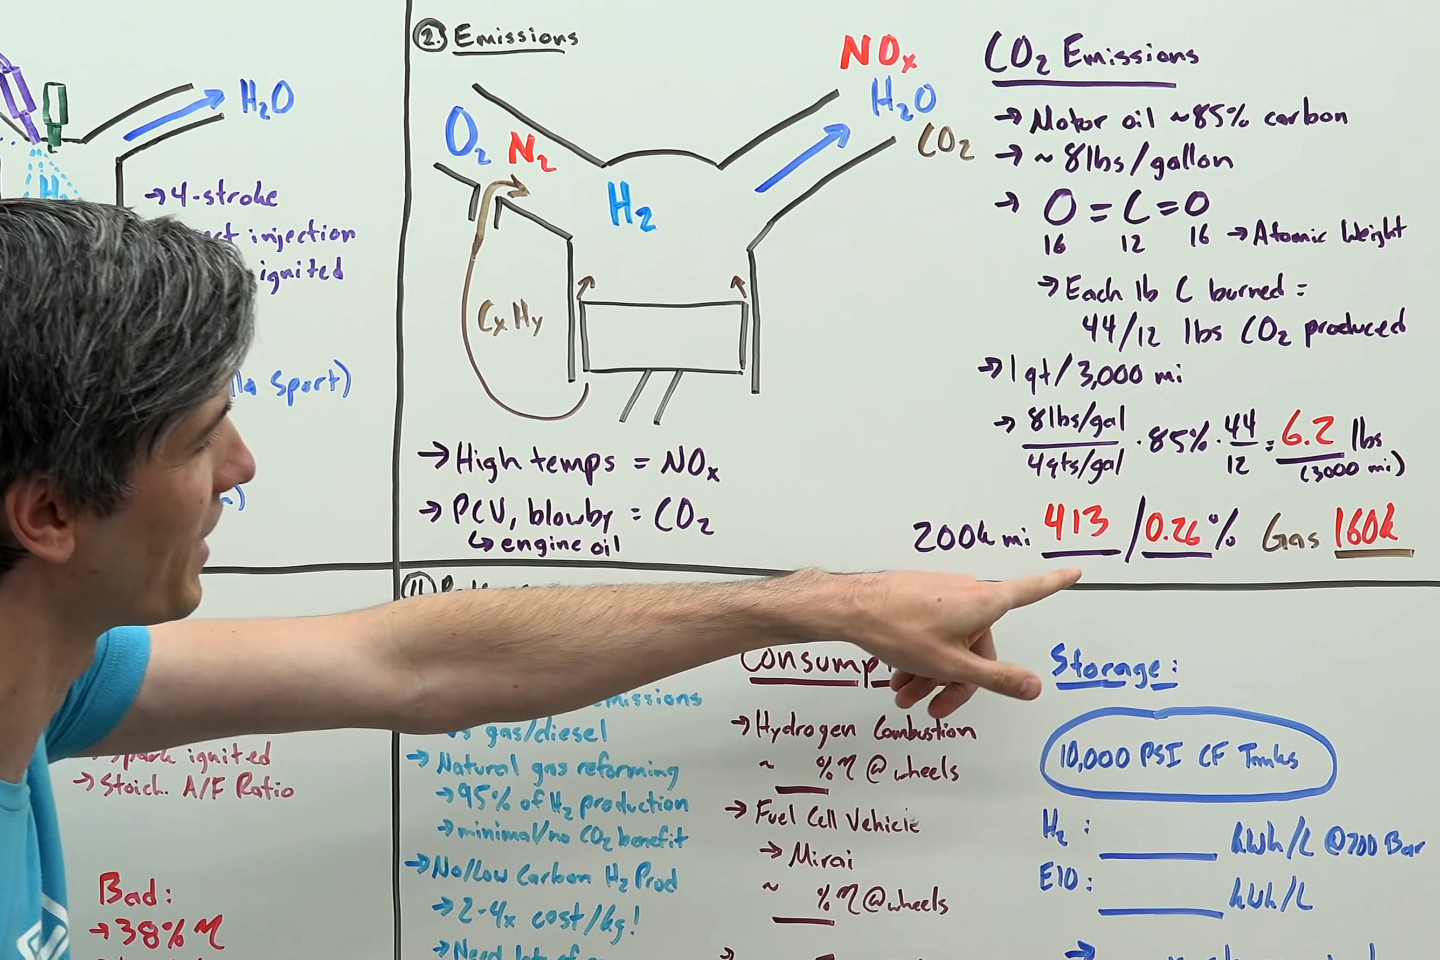 H₂O
→ 4-stroke
injection
ignited
Sport)
2. Emissions
O₂ N₂
H₂
NOx
H₂O
CO₂
CxHy
→ High temps = NOx
→ PCV, blowby = CO₂
↳ engine oil
CO₂ Emissions
→ Motor oil ~85% carbon
→ ~ 8lbs/gallon
→ O = C = O
16 12 16 → Atomic Weight
→ Each lb C burned =
44/12 lbs CO₂ produced
→ 1 qt/3,000 mi
→ 8lbs/gal / 4qts/gal · 85% · 44/12 = 6.2 lbs
(3000 mi)
200k mi 413 / 0.26% Gas 160k
spark ignited
→ Stoich. A/F Ratio
Bad:
→ 38% η
4.
emissions
vs gas/diesel
→ Natural gas reforming
→ 95% of H₂ production
→ minimal/no CO₂ benefit
→ No/low Carbon H₂ Prod
→ 2-4x cost/kg!
→ Need lots of
→ Hydrogen Combustion
~ ___ % η @ wheels
→ Fuel Cell Vehicle
→ Mirai
~ ___ % η @ wheels
Storage:
10,000 PSI CF Tanks
H₂: ______ kWh/L @700 Bar
E10: ______ kWh/L